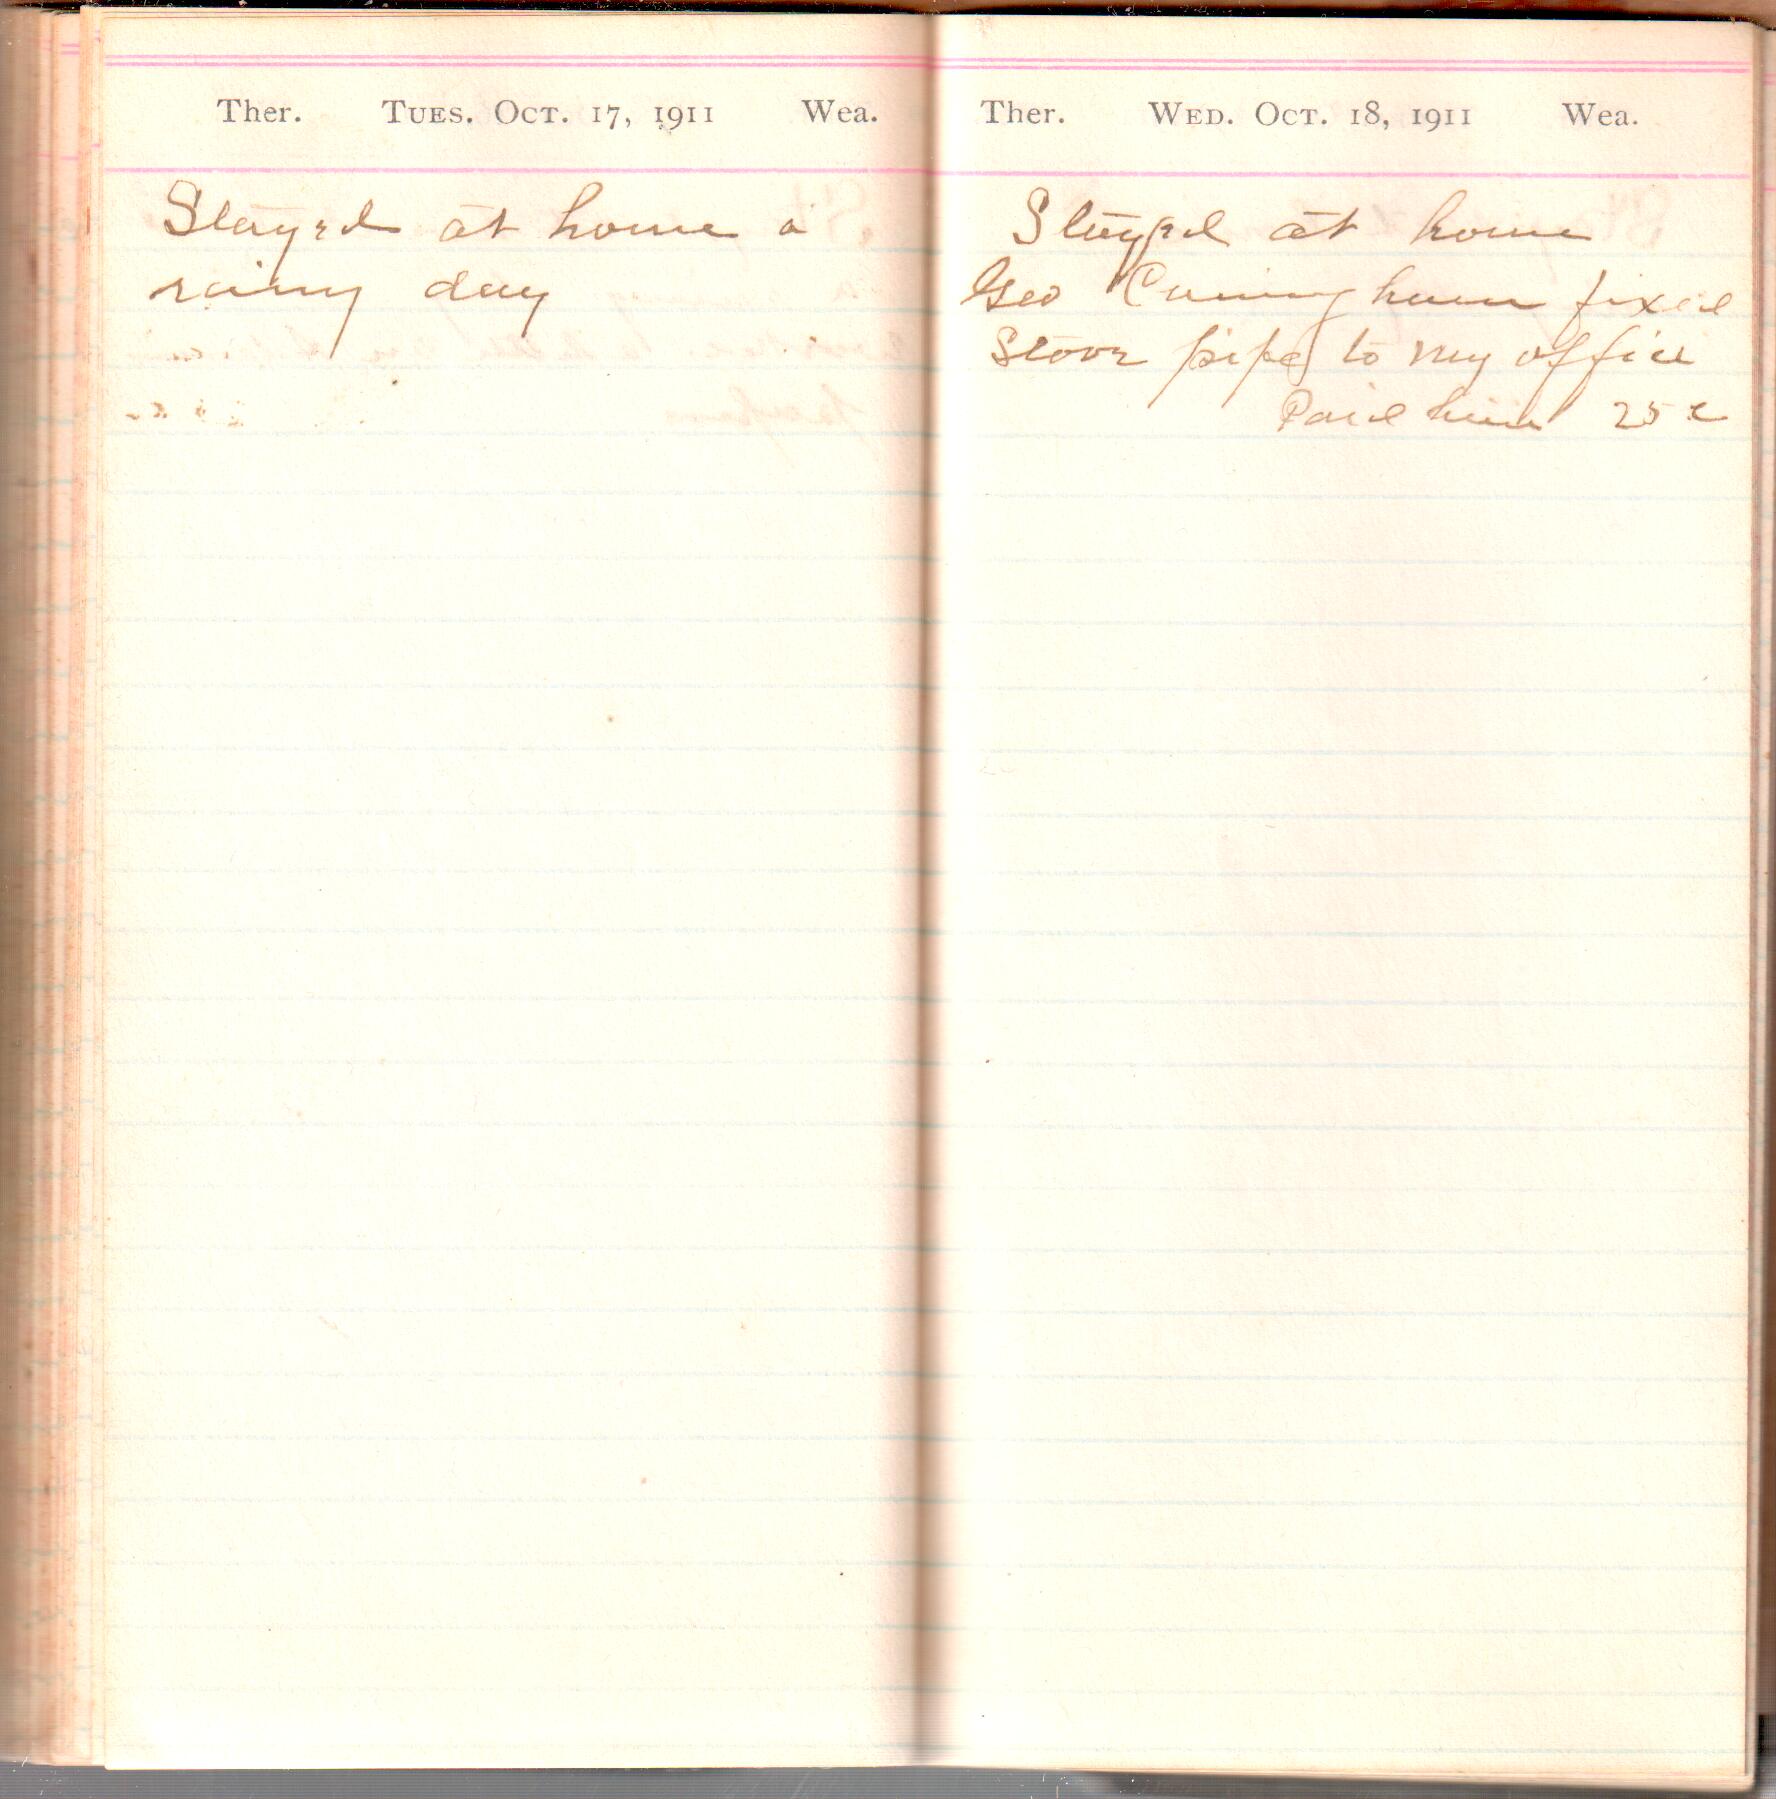 Ther. TUES. OCT. 17, 1911 Wea.
Stayed at home a
rainy day
Ther. WED. OCT. 18, 1911 Wea.
Stayed at home
Geo Cuningham fixed
Stove pipe to my office
Paid him 25 c